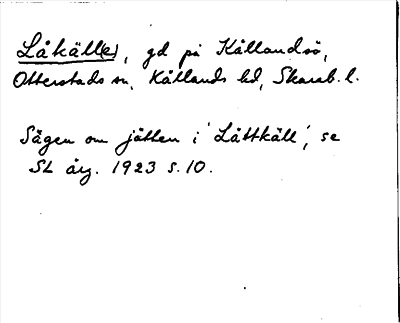 Låkälle, gd på Kållandsö,
Otterstads sn, Kållands hd, Skarab. l.
Sägen om jätten i 'Låttkäll', se
SL årg. 1923 s. 10.